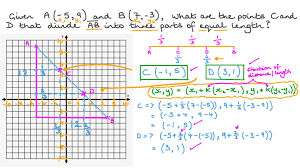 Given A(-5,9) and B(7,-3), what are the points C and
D that divide AB into three parts of equal length?
A C D B
C(-1,5) D(3,1)
fraction of
(x,y) = (x₁+k(x₂-x₁), y₁+k(y₂-y₁))
C => (-5+⅓(7-(-5)), 9+⅓(-3-9))
= (-5+4, 9-4)
= (-1,5)
D => (-5+⅔(7-(-5)), 9+⅔(-3-9))
= (3,1)
A
12
C
D
B
12